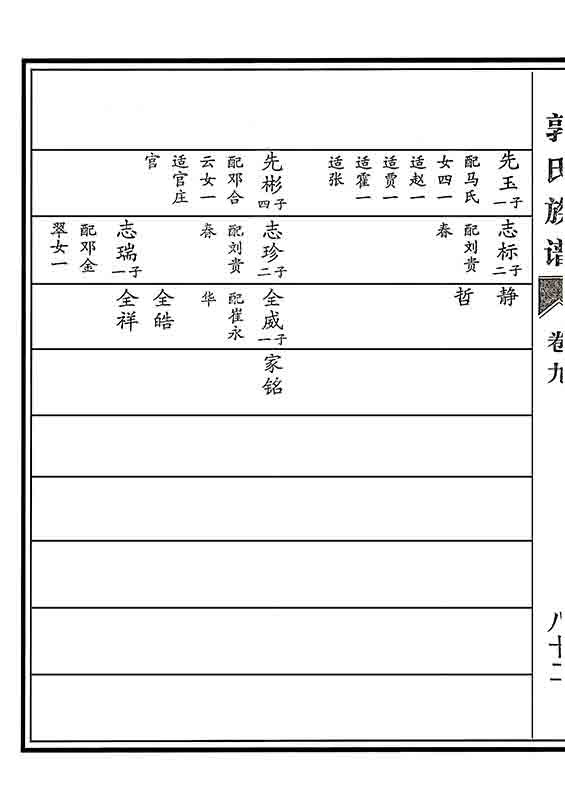 郭氏族谱
卷九
八十二
先玉一子
配马氏
女四一
适赵一
适贾一
适霍一
适张
先彬四子
配邓合
云女一
适官庄
官
志标二子
配刘贵
春
志珍二子
配刘贵
春
志瑞一子
配邓金
翠女一
静
哲
全威一子
配崔永
华
全皓
全祥
家铭